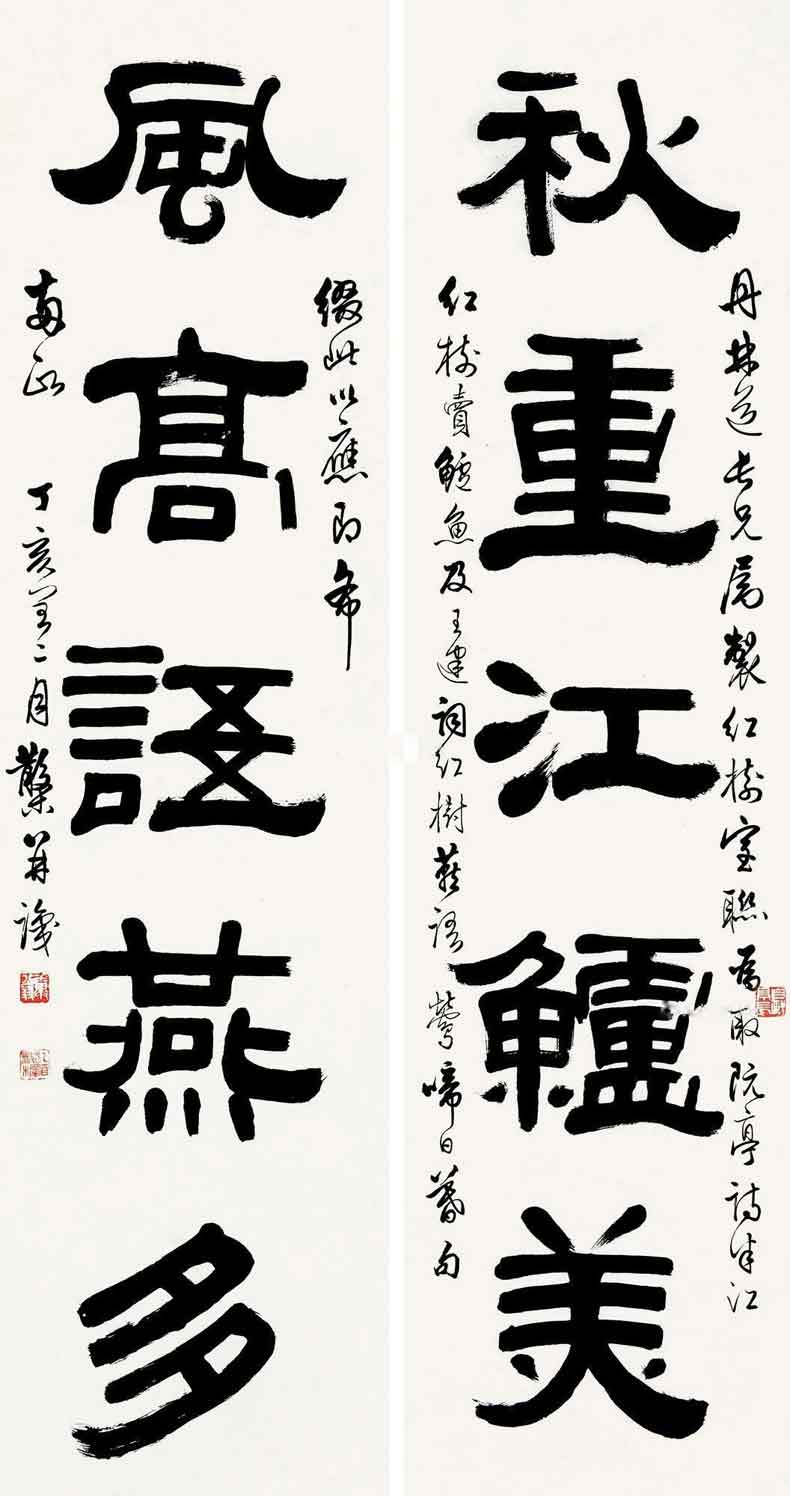 秋重江鱸美
丹林道長兄属製紅樹室聯爲取阮亭詩半江
紅樹賣鱸魚及王建詞紅樹燕語鶯啼日暮句
風高語燕多
綴此以應即希
兩正
丁亥二月